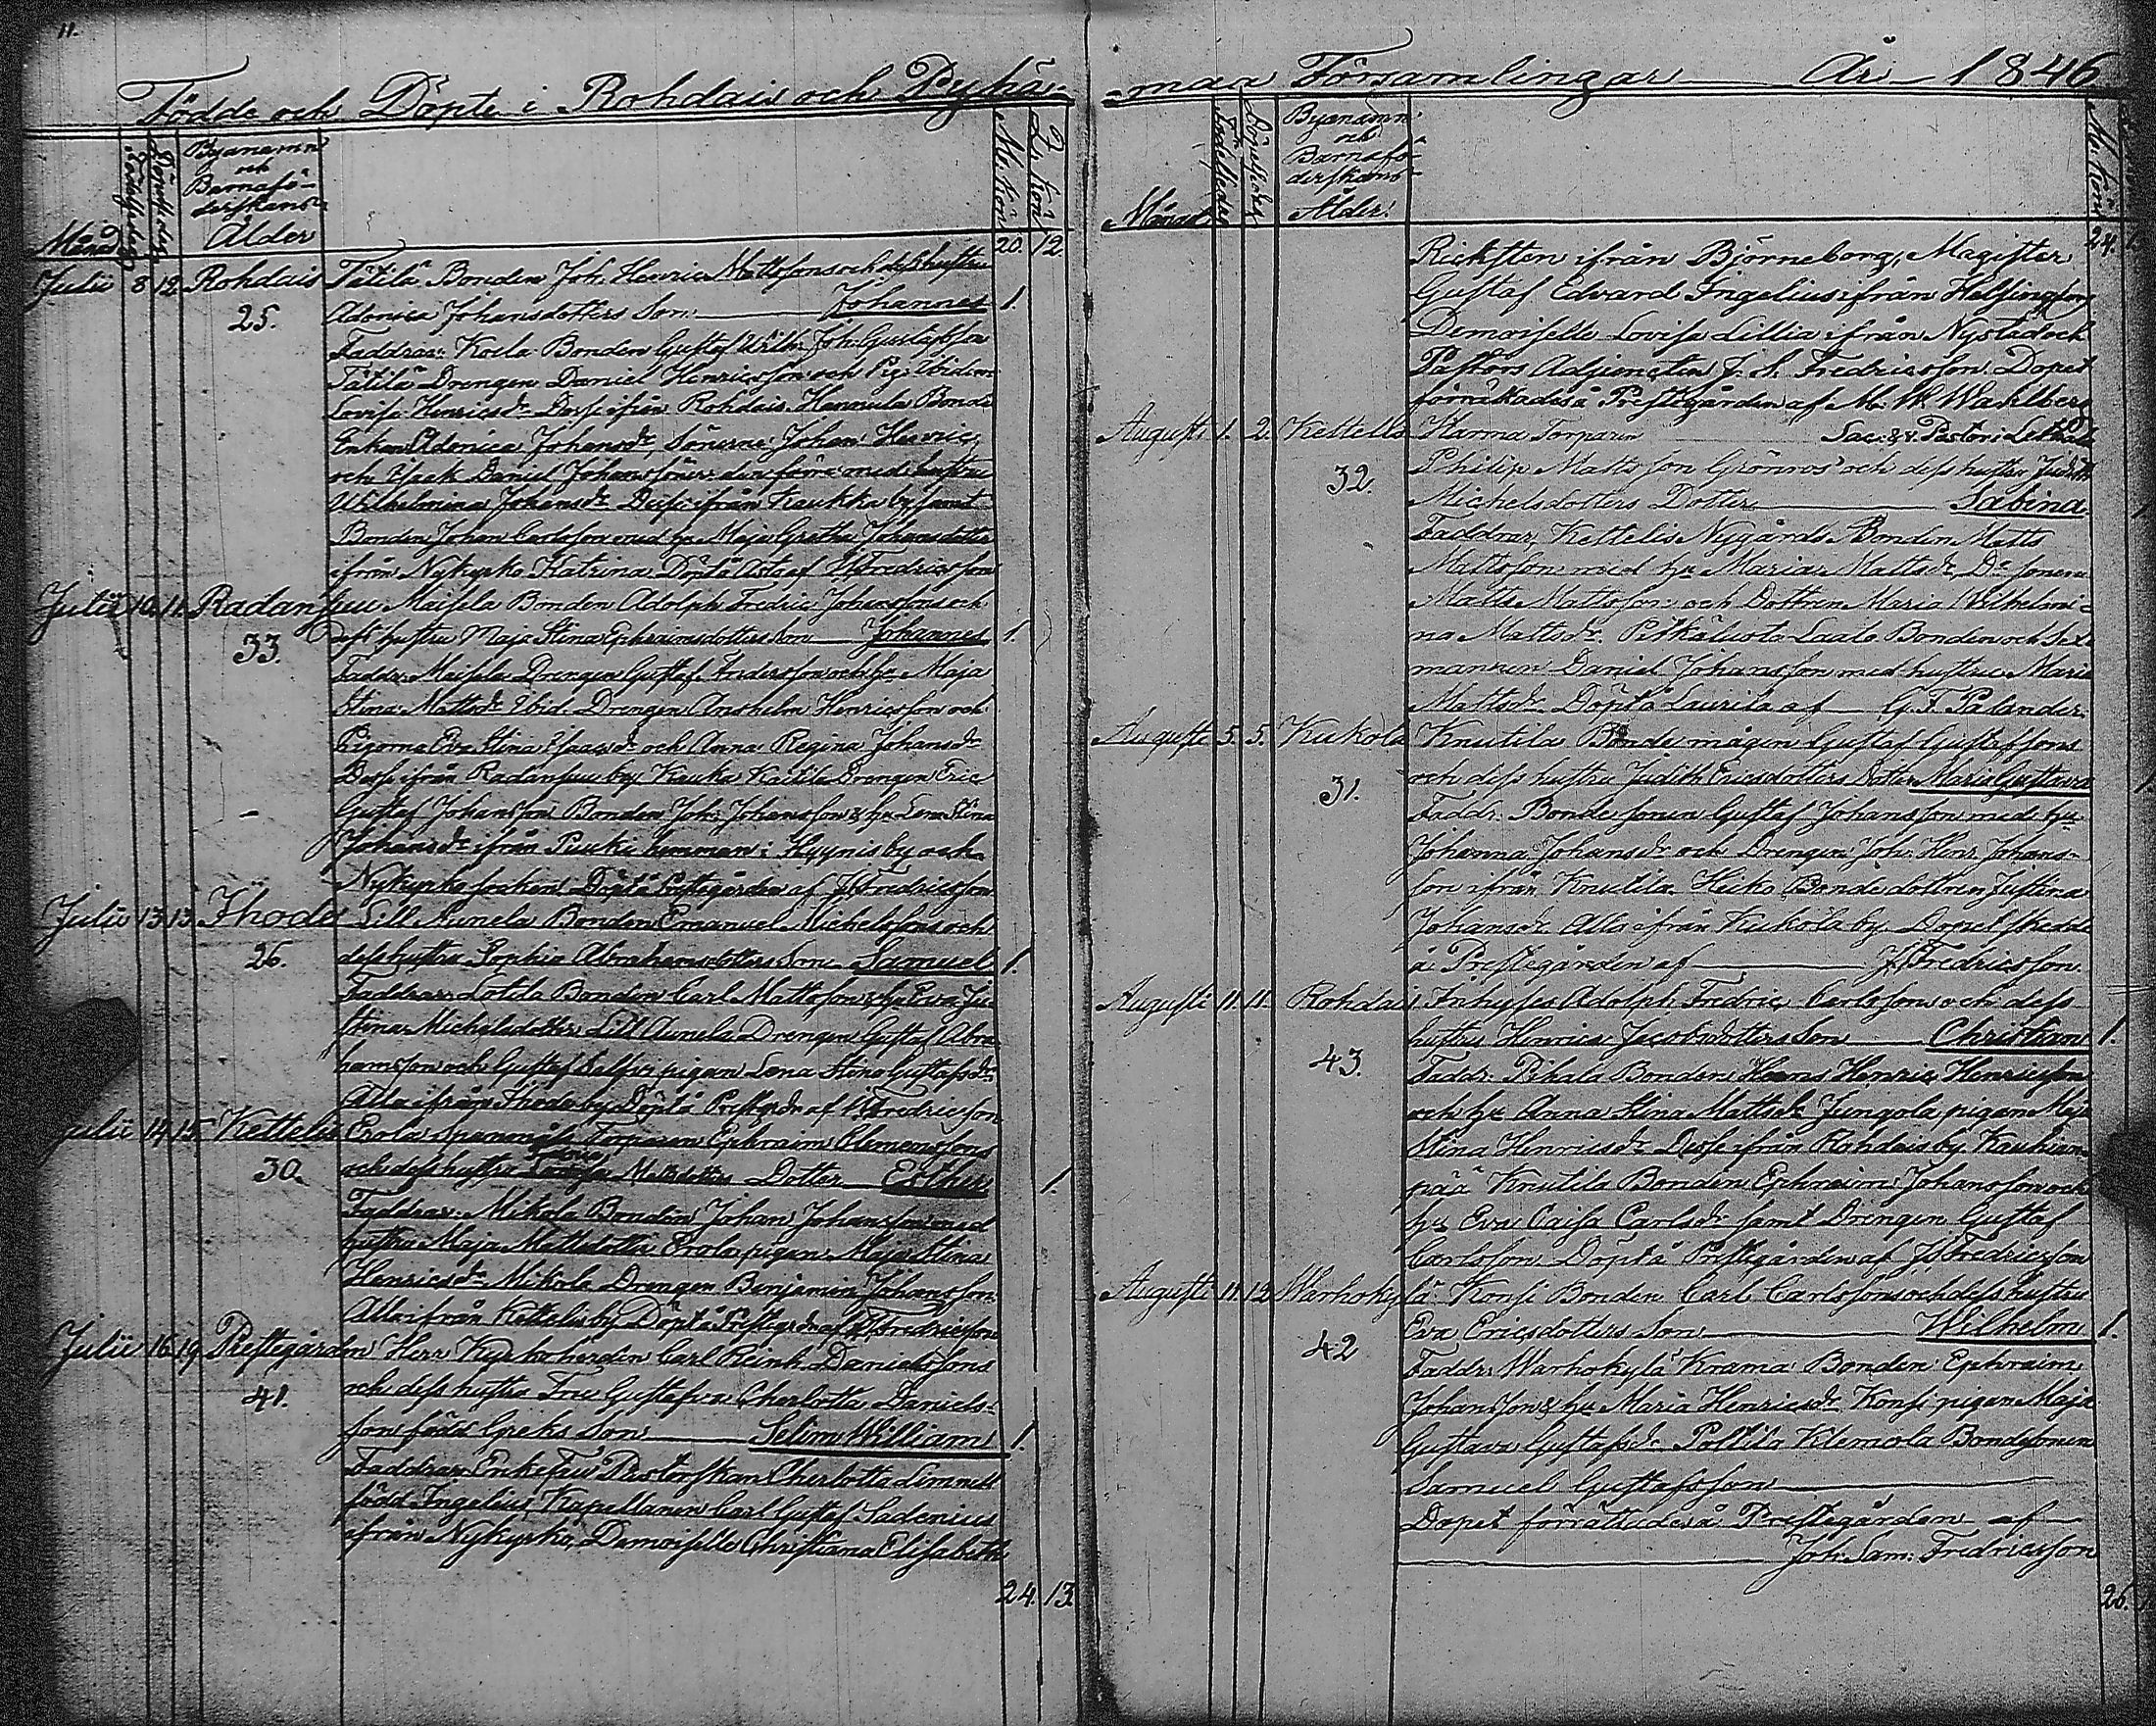 11.
Födde och Döpte i Rohdais och Pyhä-
Månad
Födelsedag
Döpelsedag
Byanamn
och
Barnafö-
derskans
Ålder
M. Kön
Qv. Kön
20. 12.
Julii 8 12 Rohdais Tätilä Bonden Joh. Henric Mattssons och dess hustru
25. Adonica Johansdotters Son Johannes 1.
Faddrar: Koela Bonden Gustaf Wilh. Joh. Gustafsson
Tätilä Drengen Daniel Henricsson och Pig. ibidem
Lovisa Henricsdr. Desse ifrån Rohdais. Hannula Bonde
Enkan Adonica Johansdr, Sönerne Johan Henric,
och Isaak Daniel Johanssöner den förre med hustru
Wilhelmina Johansdr. Desse ifrån Kaukka by samt
Bonden Johan Carlsson med hu Maja Gretha Johansdotter
ifrån Nykyrko Katrina Döpt å Asto af JSFredricsson
Julii 10. 11. Radansuu Maisela Bonden Adolph Fredric Johanssons och
33. dess hustru Maja Stina Ephraimsdotters Son Johannes 1.
Faddr. Maisela Drengen Gustaf Andersson och hu Maja
Stina Mattsdr. Ibid. Drengen Anshelm Henricsson och
Pigorna Eva Stina Isaacsdr och Anna Regina Johansdr
Desse ifrån Radansuu by. Kauka Kaitila Drengen Eric
Gustaf Johansson Bonden Joh. Johansson & hu Lena Stina
Johansdr ifrån Puuki hemman i Hyynis by och
Nykyrko socken Döpt å Prestegården af JSFredricsson
Julii 13 13 Ihode Lill Aunela Bonden Emanuel Michelssons och
26. dess hustru Sophia Abrahamsdotters Son Samuel 1.
Faddrar Lotila Bonden Carl Mattsson & hu Eva Ju-
stina Michelsdotter Lill Aunela Drengen Gustaf Abra-
hamsson och Gustaf pigan Lena Stina Gustafsdr
Alla ifrån Ihode by Döpt å Prestgrdn af JSFredricsson
Julii 14 15 Kettelis Erola Torparen Ephraim Clemenssons
30. och dess hustru Mattsdotters Dotter Esther 1.
Faddrar. Mikola Bonden Johan Johansson med
hustru Maja Mattsdotter Erola pigan Maja Stina
Henricsdr Mikola Drengen Benjamin Johansson.
Alla ifrån Kettelis by Döpt å Prestegrdn af JSFredricsson
Julii 16 19 Prestegården Herr Kyrkoherden Carl Reinh. Danielssons
41. och dess hustru Fru Gustafva Charlotta Daniels-
son född Greks Son Selim William 1.
Faddrar Enkefru Pastorskan Charlotta Limnell
född Ingelius, Kapellanen Carl Gustaf Sadenius
ifrån Nykyrko, Demoiselle Christiana Elisabeth
24. 13.
-maa Församlingar År 1846
Månad
Födelsedag
Döpelsedag
Byanamn
och
Barnafö-
derskans
Ålder.
M. Kön
24.
Ricksten ifrån Björneborg, Magister
Gustaf Edvard Ingelius ifrån Helsingfors
Demoiselle Lovisa Lillia ifrån Nystad och
Pastors Adjuncten J. S. Fredricsson. Dopet
förrättades å Prestegården af M. W. Wahlberg
Augusti 1. 2. Kettelis Harma Torparen Sac: & v. Pastor i Letala
32. Philip Mattsson Grönroos och dess hustru Judith
Michelsdotters Dotter Sabina
Faddrar, Kettelis Nygårds Bonden Matts
Mattsson med hu Maria Mattsdr, Do sonen
Matts Mattsson och Dottren Maria Wilhelmi-
na Mattsdr. Pitkäluoto Laalo Bonden och Sex-
mannen Daniel Johansson med hustru Maria
Mattsdr Döpt å Laurila af G. F. Palander.
Augusti 5. 5. Kukola Knutila Bonde mågen Gustaf Gustafssons
31. och dess hustru Judith Ericsdotters Dotter Maria Gustava
Faddr. Bonde sonen Gustaf Johansson med hu
Johanna Johansdr och Drengen Joh. Henr. Johans-
son ifrån Knutila. Heiko Bonde dottren Justina
Johansdr Alla ifrån Kukola by. Dopet skedde
å Prestegården af JSFredricsson.
Augusti 11. 11. Rohdais Inhyses Adolph Fredric Carlssons och dess
43. hustru Henrica Jacobsdotters Son Christian 1.
Faddr. Pihala Bonden Hans Henric Henricsson
och hu Anna Stina Mattsdr Jungola pigan Maja
Stina Henricsdr. Desse ifrån Rohdais by. Kauhian-
pää Knutila Bonden Ephraim Johansson och
hu Eva Caisa Carlsdr samt Drengen Gustaf
Carlsson Döpt å Prestegården af JSFredricsson
Augusti 11 12 Warhokylä Konsi Bonden Carl Carlssons och dess hustru
42 Eva Ericsdotters Son Wilhelm 1.
Faddr. Warhokylä Krama Bonden Ephraim
Johansson & hu Maria Henricsdr. Konsi pigan Maja
Gustava Gustafsdr. Polttila Klemola Bondesonen
Samuel Gustafsson
Dopet förrättades å Prestegården af
Joh. Sam: Fredricsson
26.